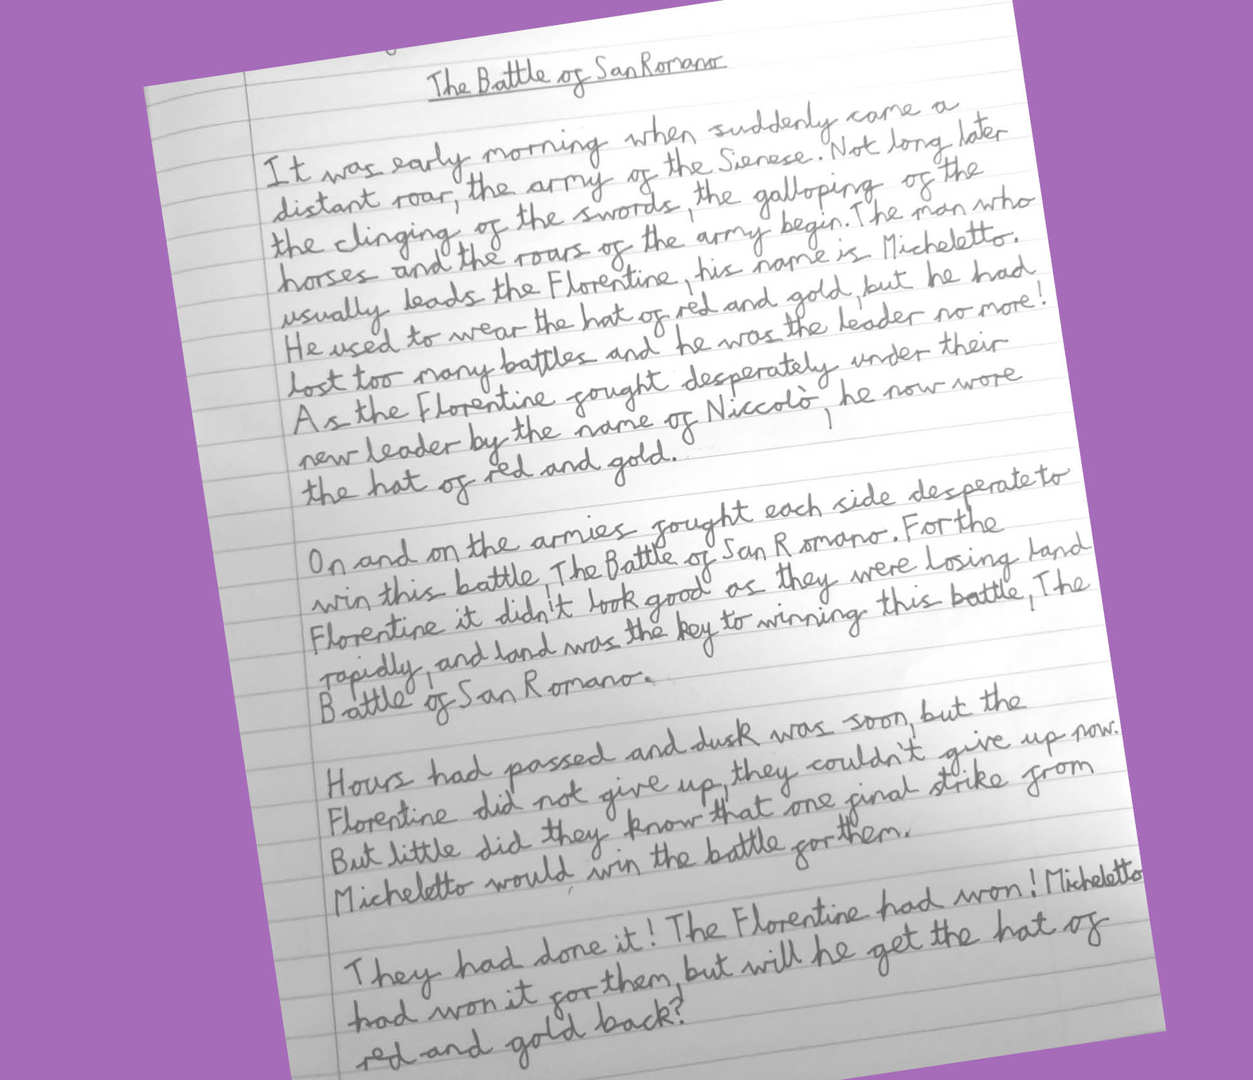 The Battle of San Romano
It was early morning when suddenly came a
distant roar, the army of the Sienese. Not long later
the clinging of the swords, the galloping of the
horses and the roars of the army begin. The man who
usually leads the Florentine, his name is Micheletto.
He used to wear the hat of red and gold, but he had
lost too many battles and he was the leader no more!
As the Florentine fought desperately under their
new leader by the name of Niccolò, he now wore
the hat of red and gold.
On and on the armies fought each side desperate to
win this battle, The Battle of San Romano. For the
Florentine it didn't look good as they were losing land
rapidly, and land was the key to winning this battle, The
Battle of San Romano.
Hours had passed and dusk was soon, but the
Florentine did not give up, they couldn't give up now.
But little did they know that one final strike from
Micheletto would, win the battle for them.
They had done it! The Florentine had won! Micheletto
had won it for them, but will he get the hat of
red and gold back?